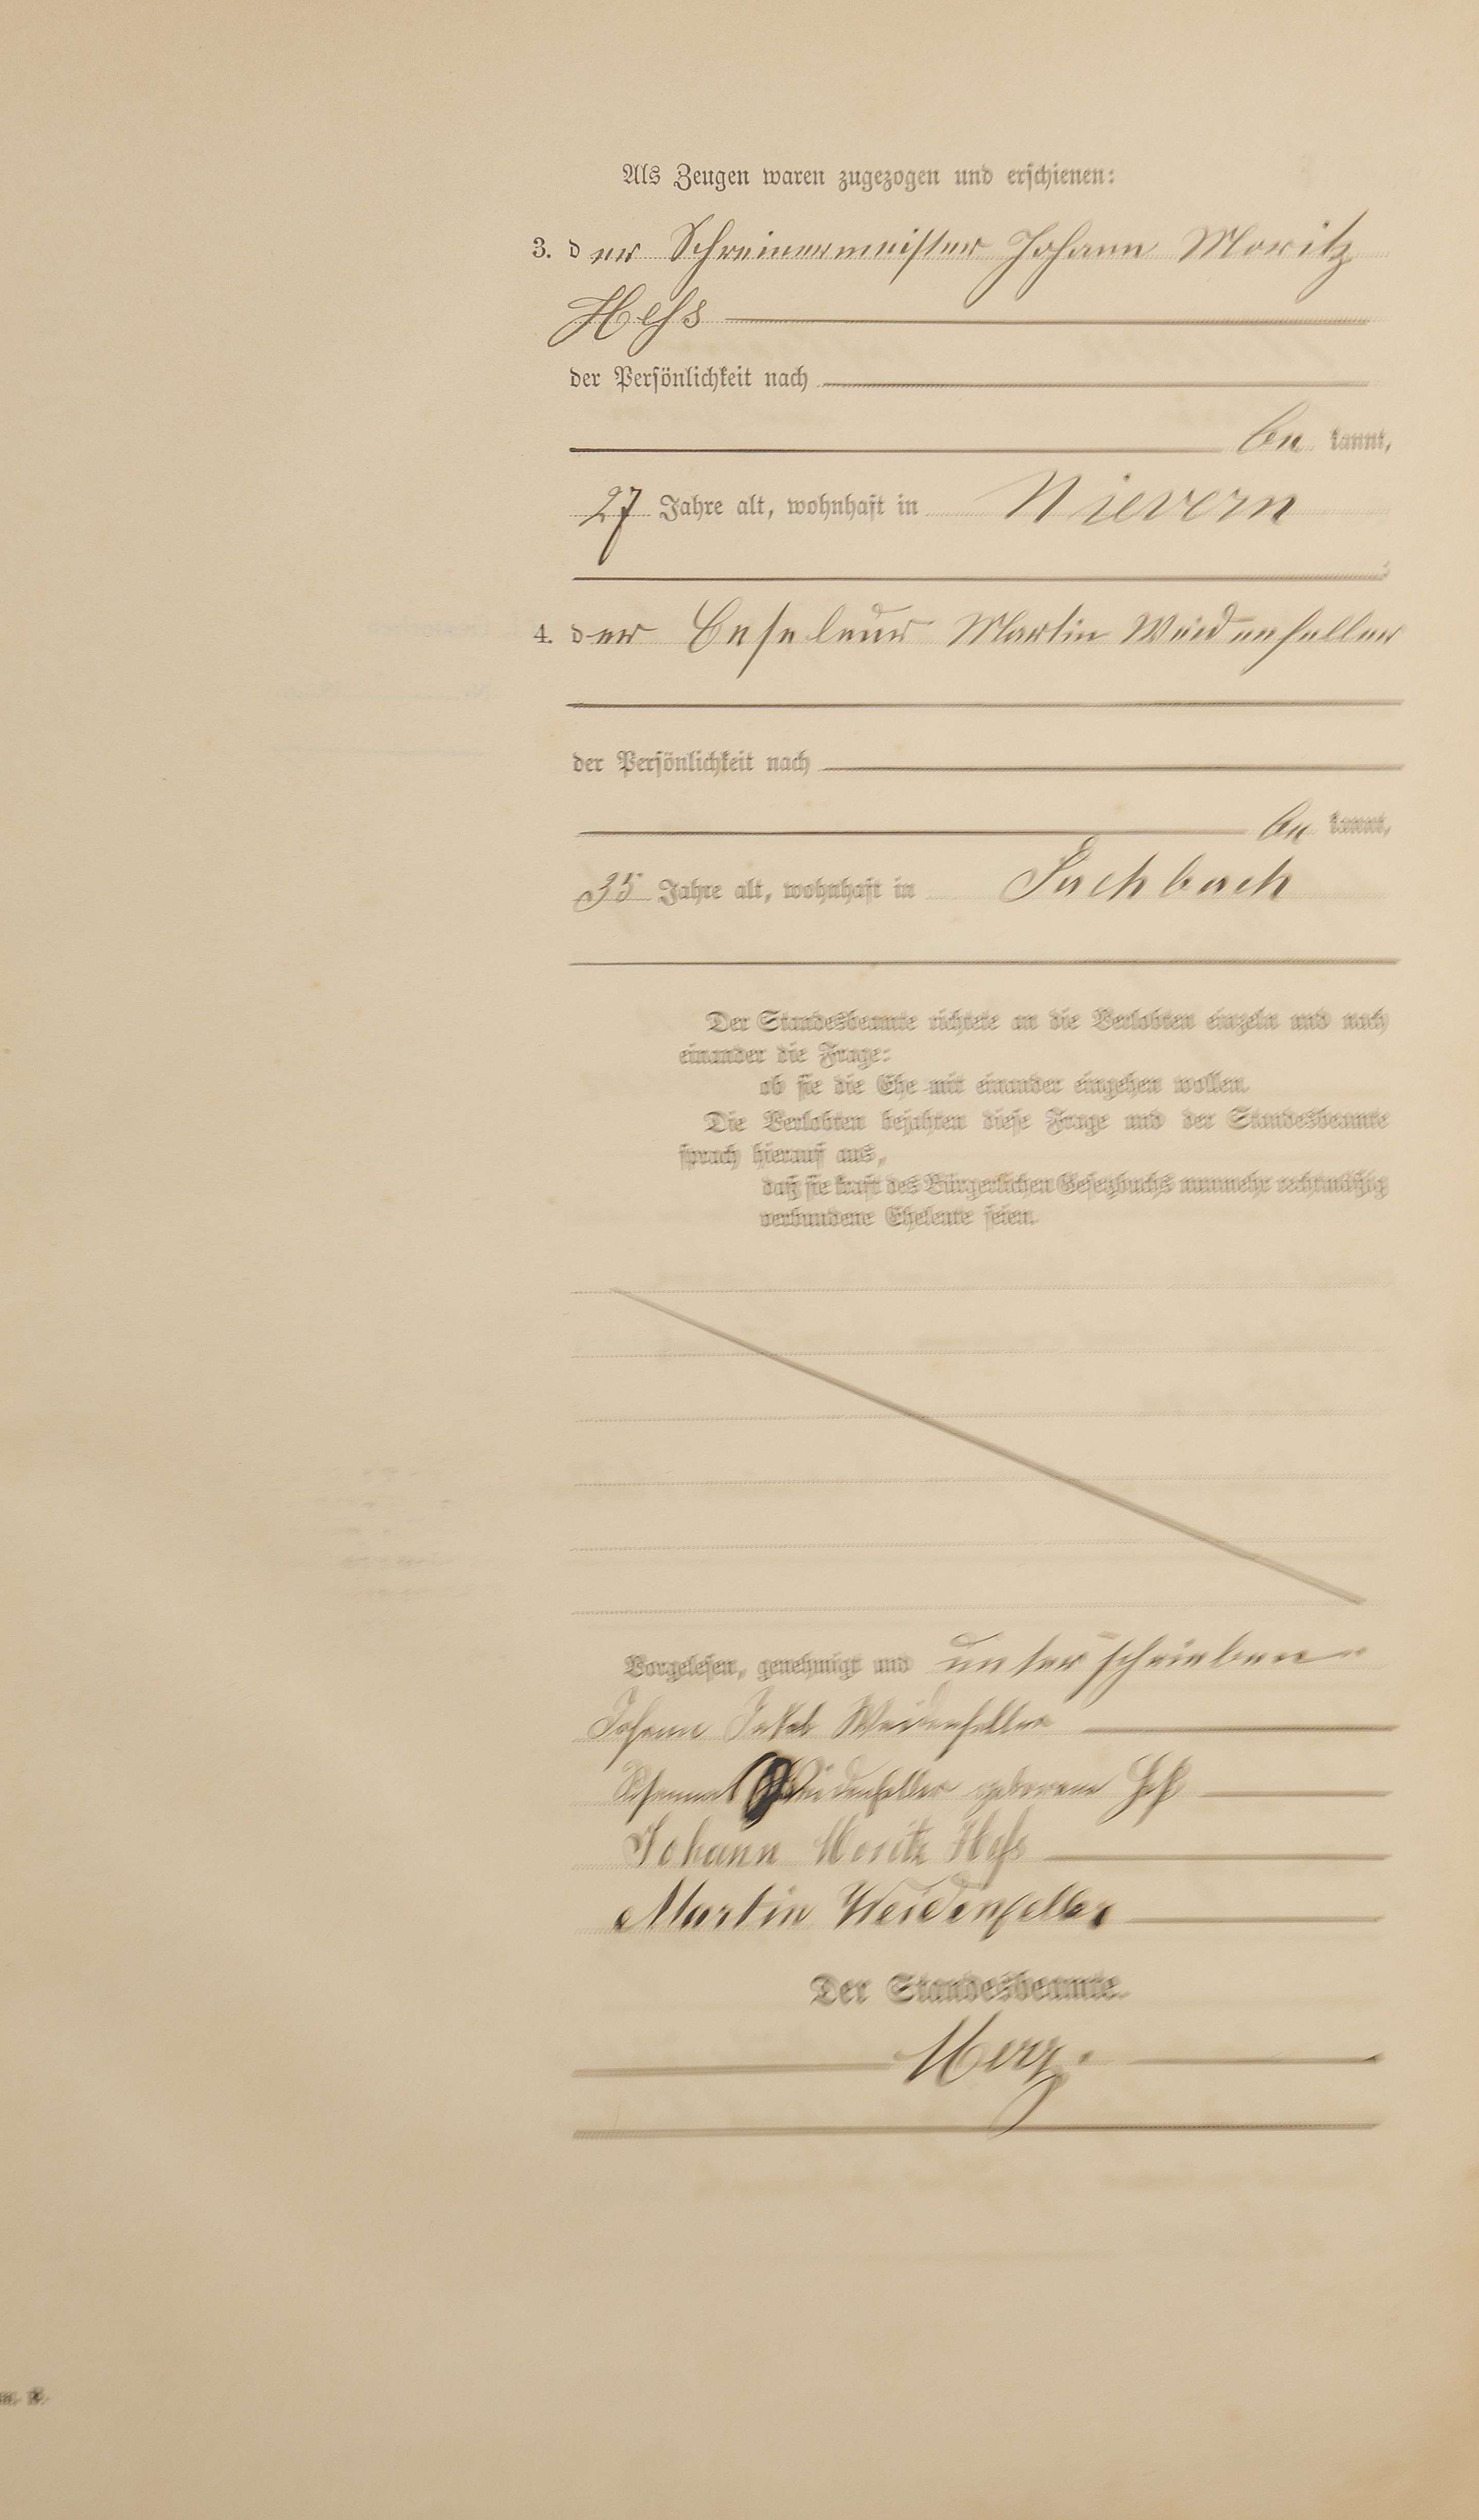 Als Zeugen waren zugezogen und erschienen:
3. der Schreinermeister Johann Moritz
Hess
der Persönlichkeit nach
be kannt,
27 Jahre alt, wohnhaft in Nievern
4. der Ciseleur Martin Weidenfeller
der Persönlichkeit nach
be kannt,
35 Jahre alt, wohnhaft in Fachbach
Der Standesbeamte richtete an die Verlobten einzeln und nach
einander die Frage:
ob sie die Ehe mit einander eingehen wollen.
Die Verlobten bejahten diese Frage und der Standesbeamte
sprach hierauf aus,
daß sie kraft des Bürgerlichen Gesetzbuchs nunmehr rechtmäßig
verbundene Eheleute seien.
Vorgelesen, genehmigt und unterschrieben
Johann Jakob Weidenfeller
Weidenfeller geborene Heß
Johann Moritz Hess
Martin Weidenfeller
Der Standesbeamte.
Merz.